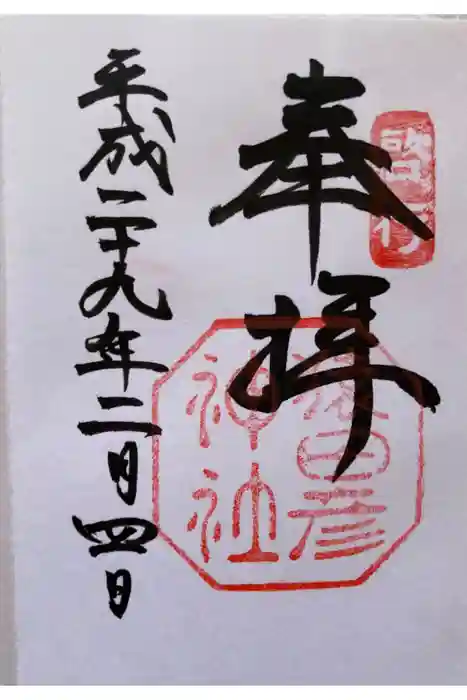 啓行
奉拝
猿田彦
神社
平成二十九年二月四日